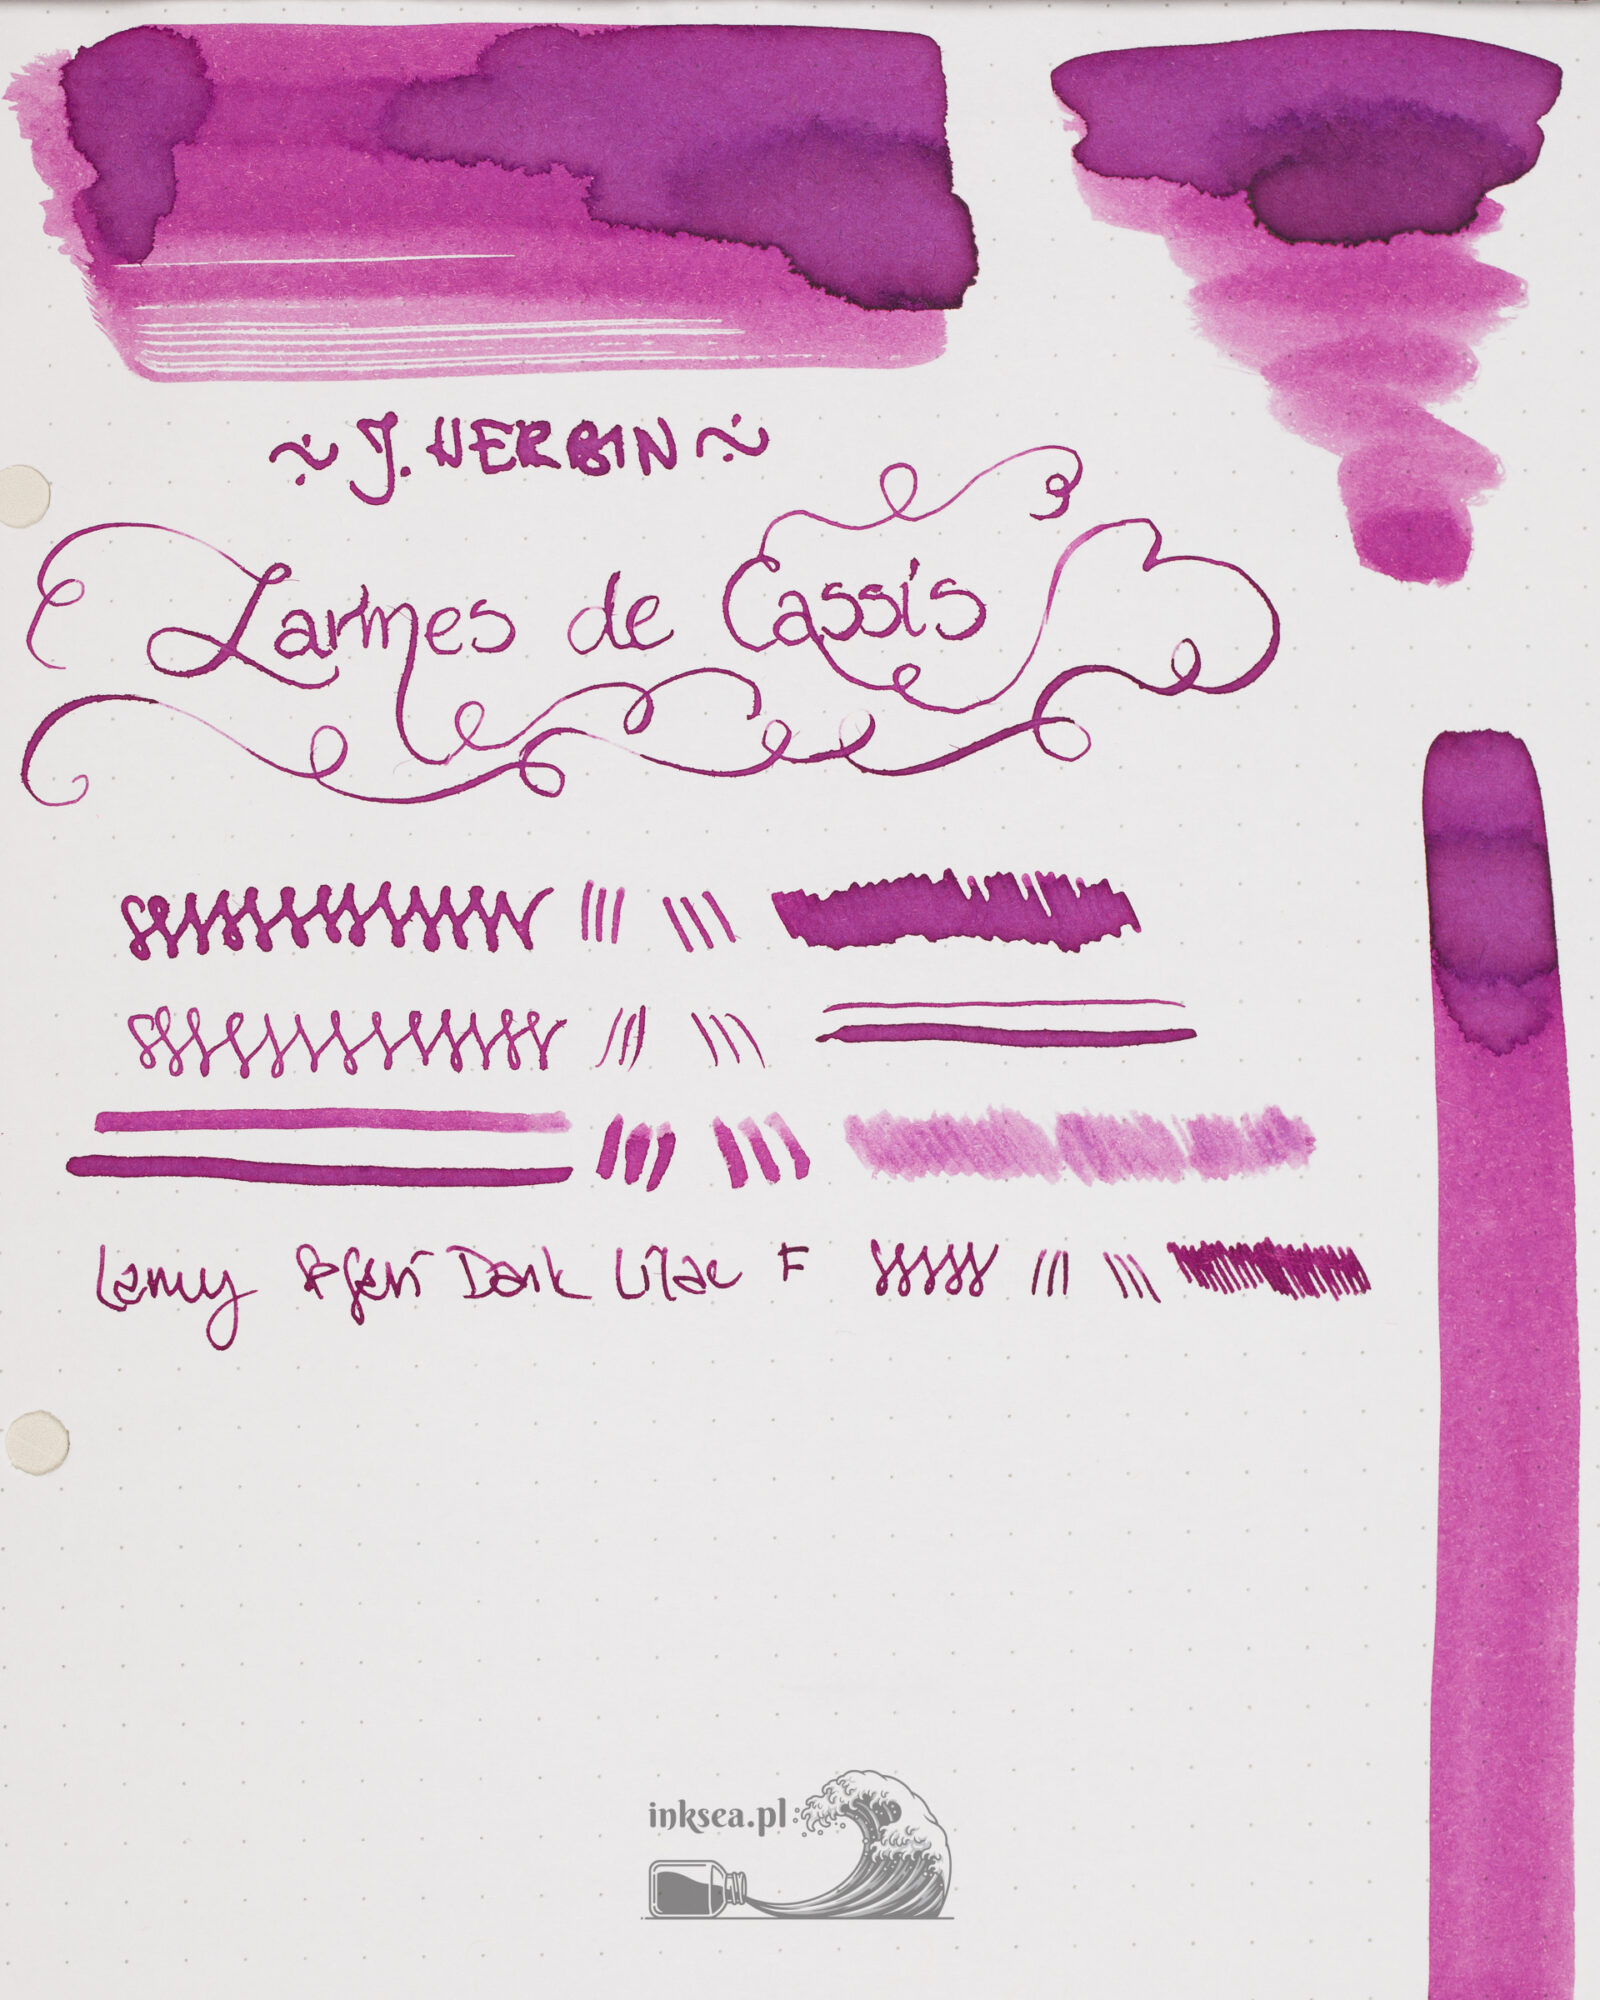 ~ J. HERBIN ~
Larmes de Cassis
Lamy Safari Dark Lilac F
inksea.pl